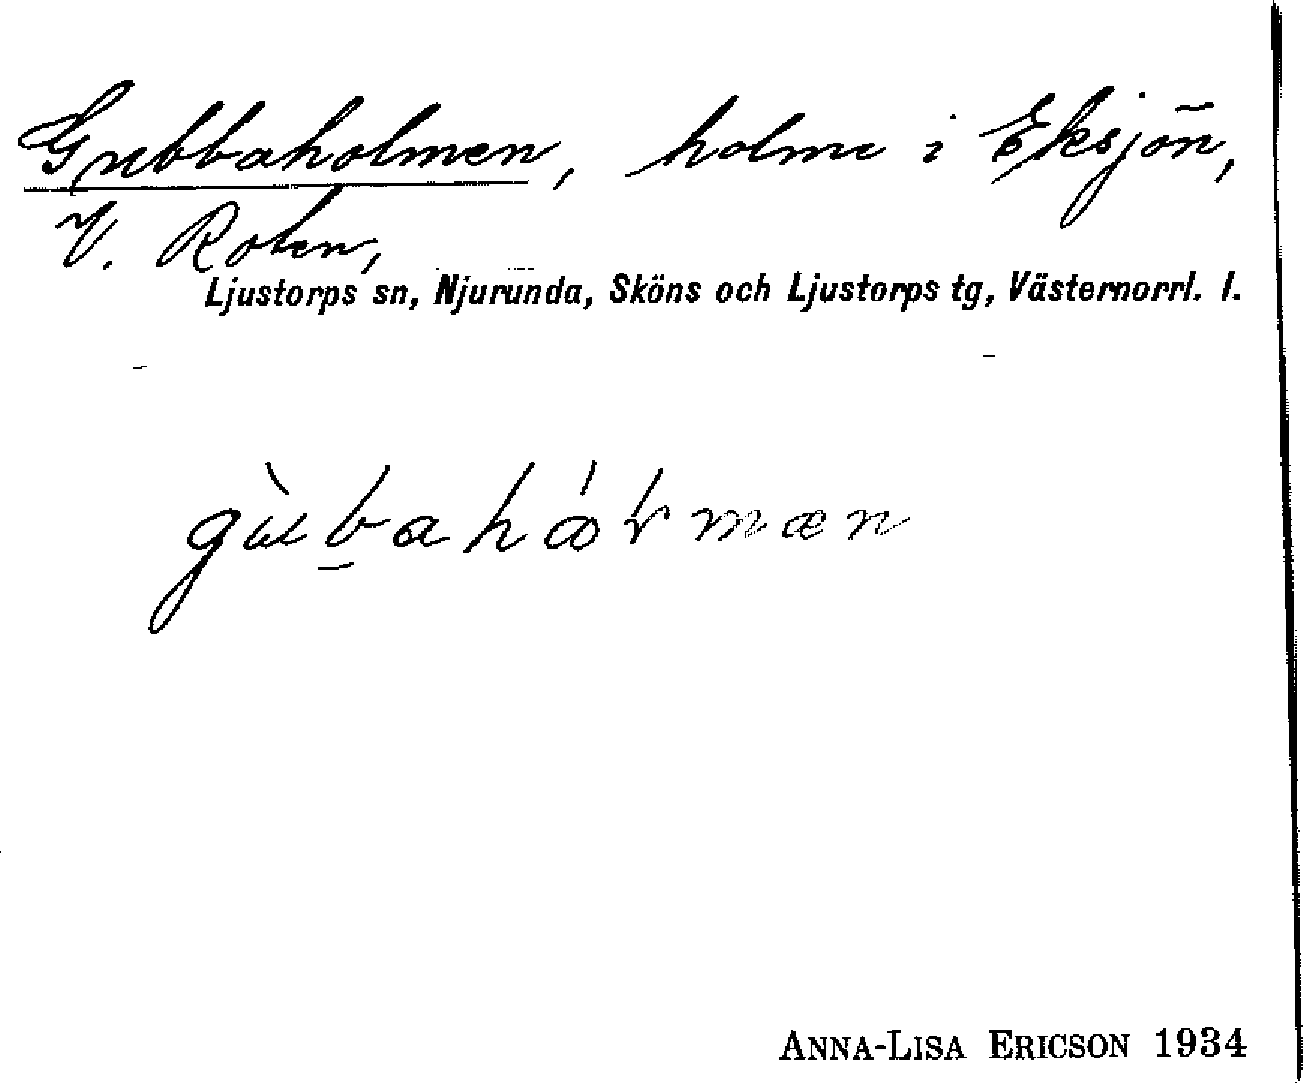 Gubbaholmen, holme i Eksjön,
V. Roten,
Ljustorps sn, Njurunda, Sköns och Ljustorps tg, Västernorrl. l.
gùbahármæn
ANNA-LISA ERICSON 1934